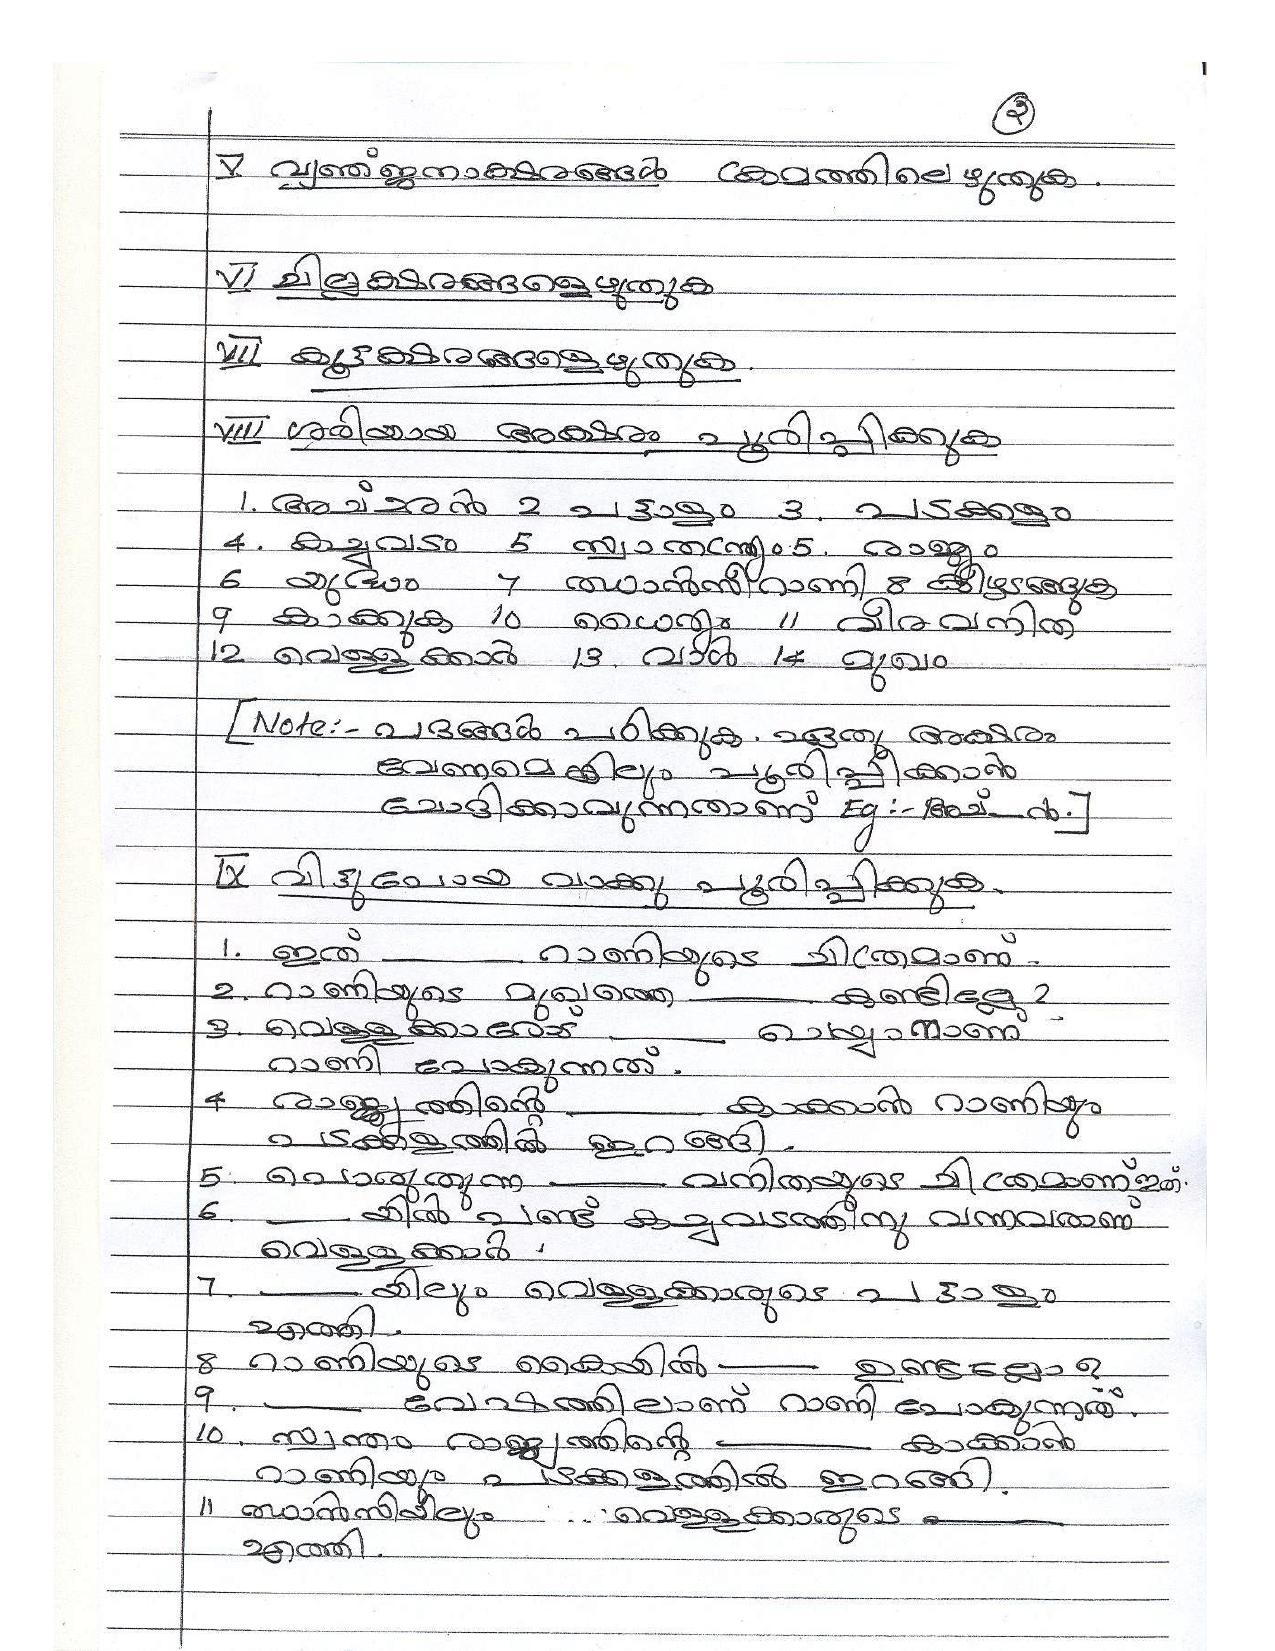 ③
V വ്യഞ്ജനാക്ഷരങ്ങൾ ക്രമത്തിലെഴുതുക.
VI ചില്ലക്ഷരങ്ങളെഴുതുക
VII കൂട്ടക്ഷരങ്ങളെഴുതുക.
VIII ശരിയായ അക്ഷരം പൂരിപ്പിക്കുക
1. അച്ഛൻ 2 പട്ടാളം 3. പടക്കളം
4. കച്ചവടം 5 സ്വാതന്ത്ര്യം 5. രാജ്യം
6 യുദ്ധം 7 ഝാൻസീറാണി 8 കീഴടങ്ങുക
9 കാക്കുക 10 ധൈര്യം 11 വീരവനിത
12 വെള്ളക്കാർ 13. വാൾ 14 മുഖം
[Note:- പദങ്ങൾ പഠിക്കുക. ഏതു അക്ഷരം
വേണമെങ്കിലും പൂരിപ്പിക്കാൻ
ചോദിക്കാവുന്നതാണ് Eg:- അച്__ൻ.]
IX വിട്ടുപോയ വാക്കു പൂരിപ്പിക്കുക.
1. ഇത് ______ റാണിയുടെ ചിത്രമാണ്.
2. റാണിയുടെ മുഖത്തെ ______ കണ്ടില്ലേ?
3. വെള്ളക്കാരോട് ______ ചെയ്യാനാണ്
റാണി പോകുന്നത്.
4 രാജ്യത്തിന്റെ ______ കാക്കാൻ റാണിയും
പടക്കളത്തിൽ ഇറങ്ങി.
5. പൊരുതുന്ന ______ വനിതയുടെ ചിത്രമാണ് ഇത്.
6. ____ യിൽ പണ്ട് കച്ചവടത്തിനു വന്നവരാണ്
വെള്ളക്കാർ.
7. ______ യിലും വെള്ളക്കാരുടെ പട്ടാളം
എത്തി.
8 റാണിയുടെ കൈയിൽ ______ ഉണ്ടല്ലോ?
9. ______ വേഷത്തിലാണ് റാണി പോകുന്നത്.
10. സ്വന്തം രാജ്യത്തിന്റെ ______ കാക്കാൻ
റാണിയും പടക്കളത്തിൽ ഇറങ്ങി.
11 ഝാൻസിയിലും വെള്ളക്കാരുടെ ______
എത്തി.